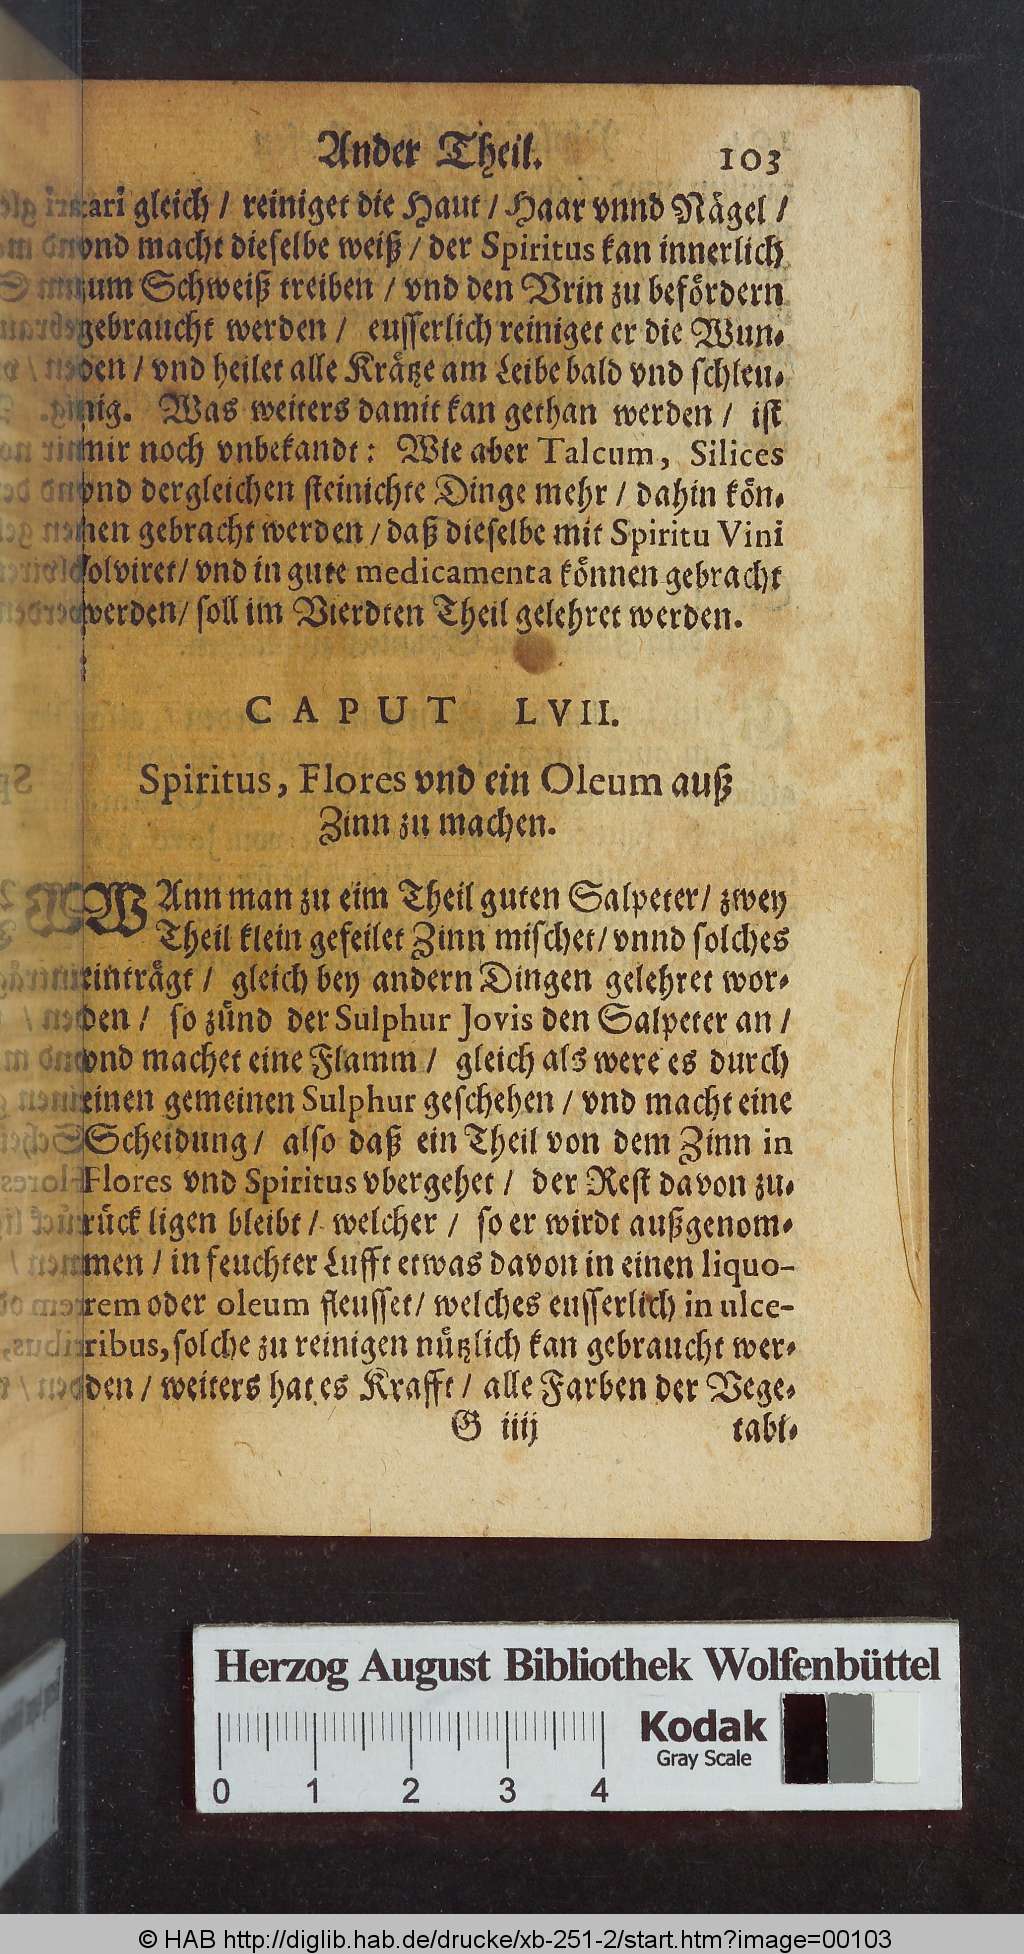 Ander Theil. 103
tari gleich / reiniget die Haut / Haar vnnd Nägel /
vnd macht dieselbe weiß / der Spiritus kan innerlich
zum Schweiß treiben / vnd den Vrin zu befördern
gebraucht werden / eusserlich reiniget er die Wun-
den / vnd heilet alle Krätze am Leibe bald vnd schleu-
nig. Was weiters damit kan gethan werden / ist
mir noch vnbekandt: Wie aber Talcum, Silices
vnd dergleichen steinichte Dinge mehr / dahin kön-
nen gebracht werden / daß dieselbe mit Spiritu Vini
solviret / vnd in gute medicamenta können gebracht
werden / soll im Vierdten Theil gelehret werden.
CAPUT LVII.
Spiritus, Flores vnd ein Oleum auß
Zinn zu machen.
WAnn man zu eim Theil guten Salpeter / zwey
Theil klein gefeilet Zinn mischet / vnnd solches
einträgt / gleich bey andern Dingen gelehret wor-
den / so zünd der Sulphur Jovis den Salpeter an /
vnd machet eine Flamm / gleich als were es durch
einen gemeinen Sulphur geschehen / vnd macht eine
Scheidung / also daß ein Theil von dem Zinn in
Flores vnd Spiritus vbergehet / der Rest davon zu-
rück ligen bleibt / welcher / so er wirdt außgenom-
men / in feuchter Lufft etwas davon in einen liquo-
rem oder oleum fleusset / welches eusserlich in ulce-
ribus, solche zu reinigen nützlich kan gebraucht wer-
den / weiters hat es Krafft / alle Farben der Vege-
G iiij tabi-
Herzog August Bibliothek Wolfenbüttel
Kodak
Gray Scale
0 1 2 3 4
© HAB http://diglib.hab.de/drucke/xb-251-2/start.htm?image=00103